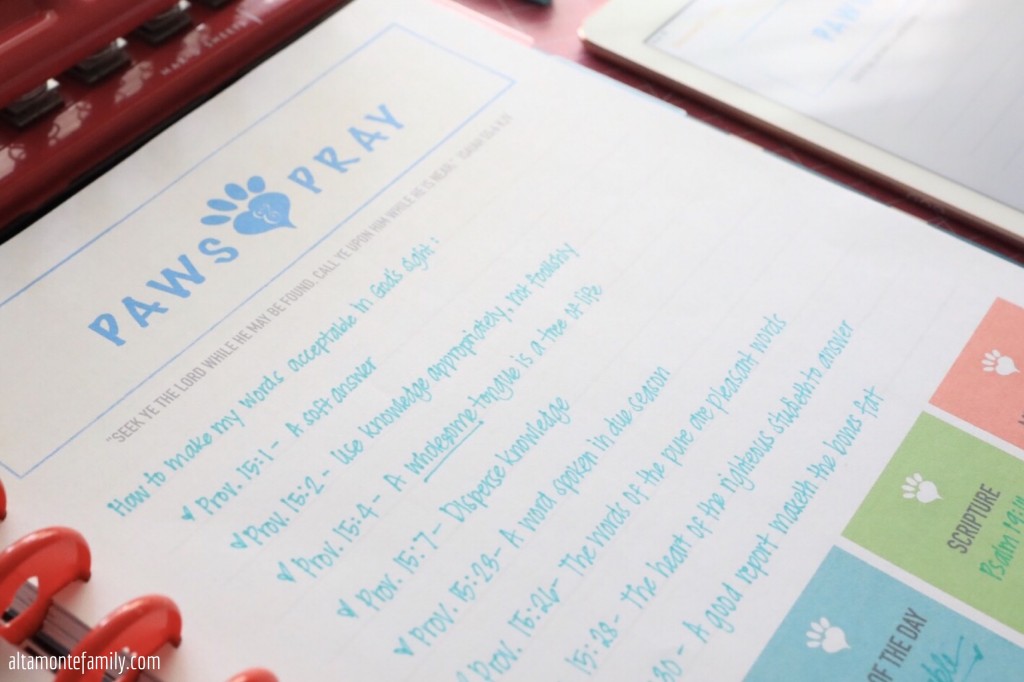 PAWS & PRAY
"SEEK YE THE LORD WHILE HE MAY BE FOUND. CALL YE UPON HIM WHILE HE IS NEAR."
How to make my words acceptable in God's sight:
✓ Prov. 15:1 - A soft answer
✓ Prov. 15:2 - Use knowledge appropriately, not foolishly
✓ Prov. 15:4 - A wholesome tongue is a tree of life
✓ Prov. 15:7 - Disperse knowledge
✓ Prov. 15:23 - A word spoken in due season
Prov. 15:26 - The words of the pure are pleasant words
15:28 - The heart of the righteous studieth to answer
30 - A good report maketh the bones fat
SCRIPTURE
Psalm 19:14
OF THE DAY
altamontefamily.com